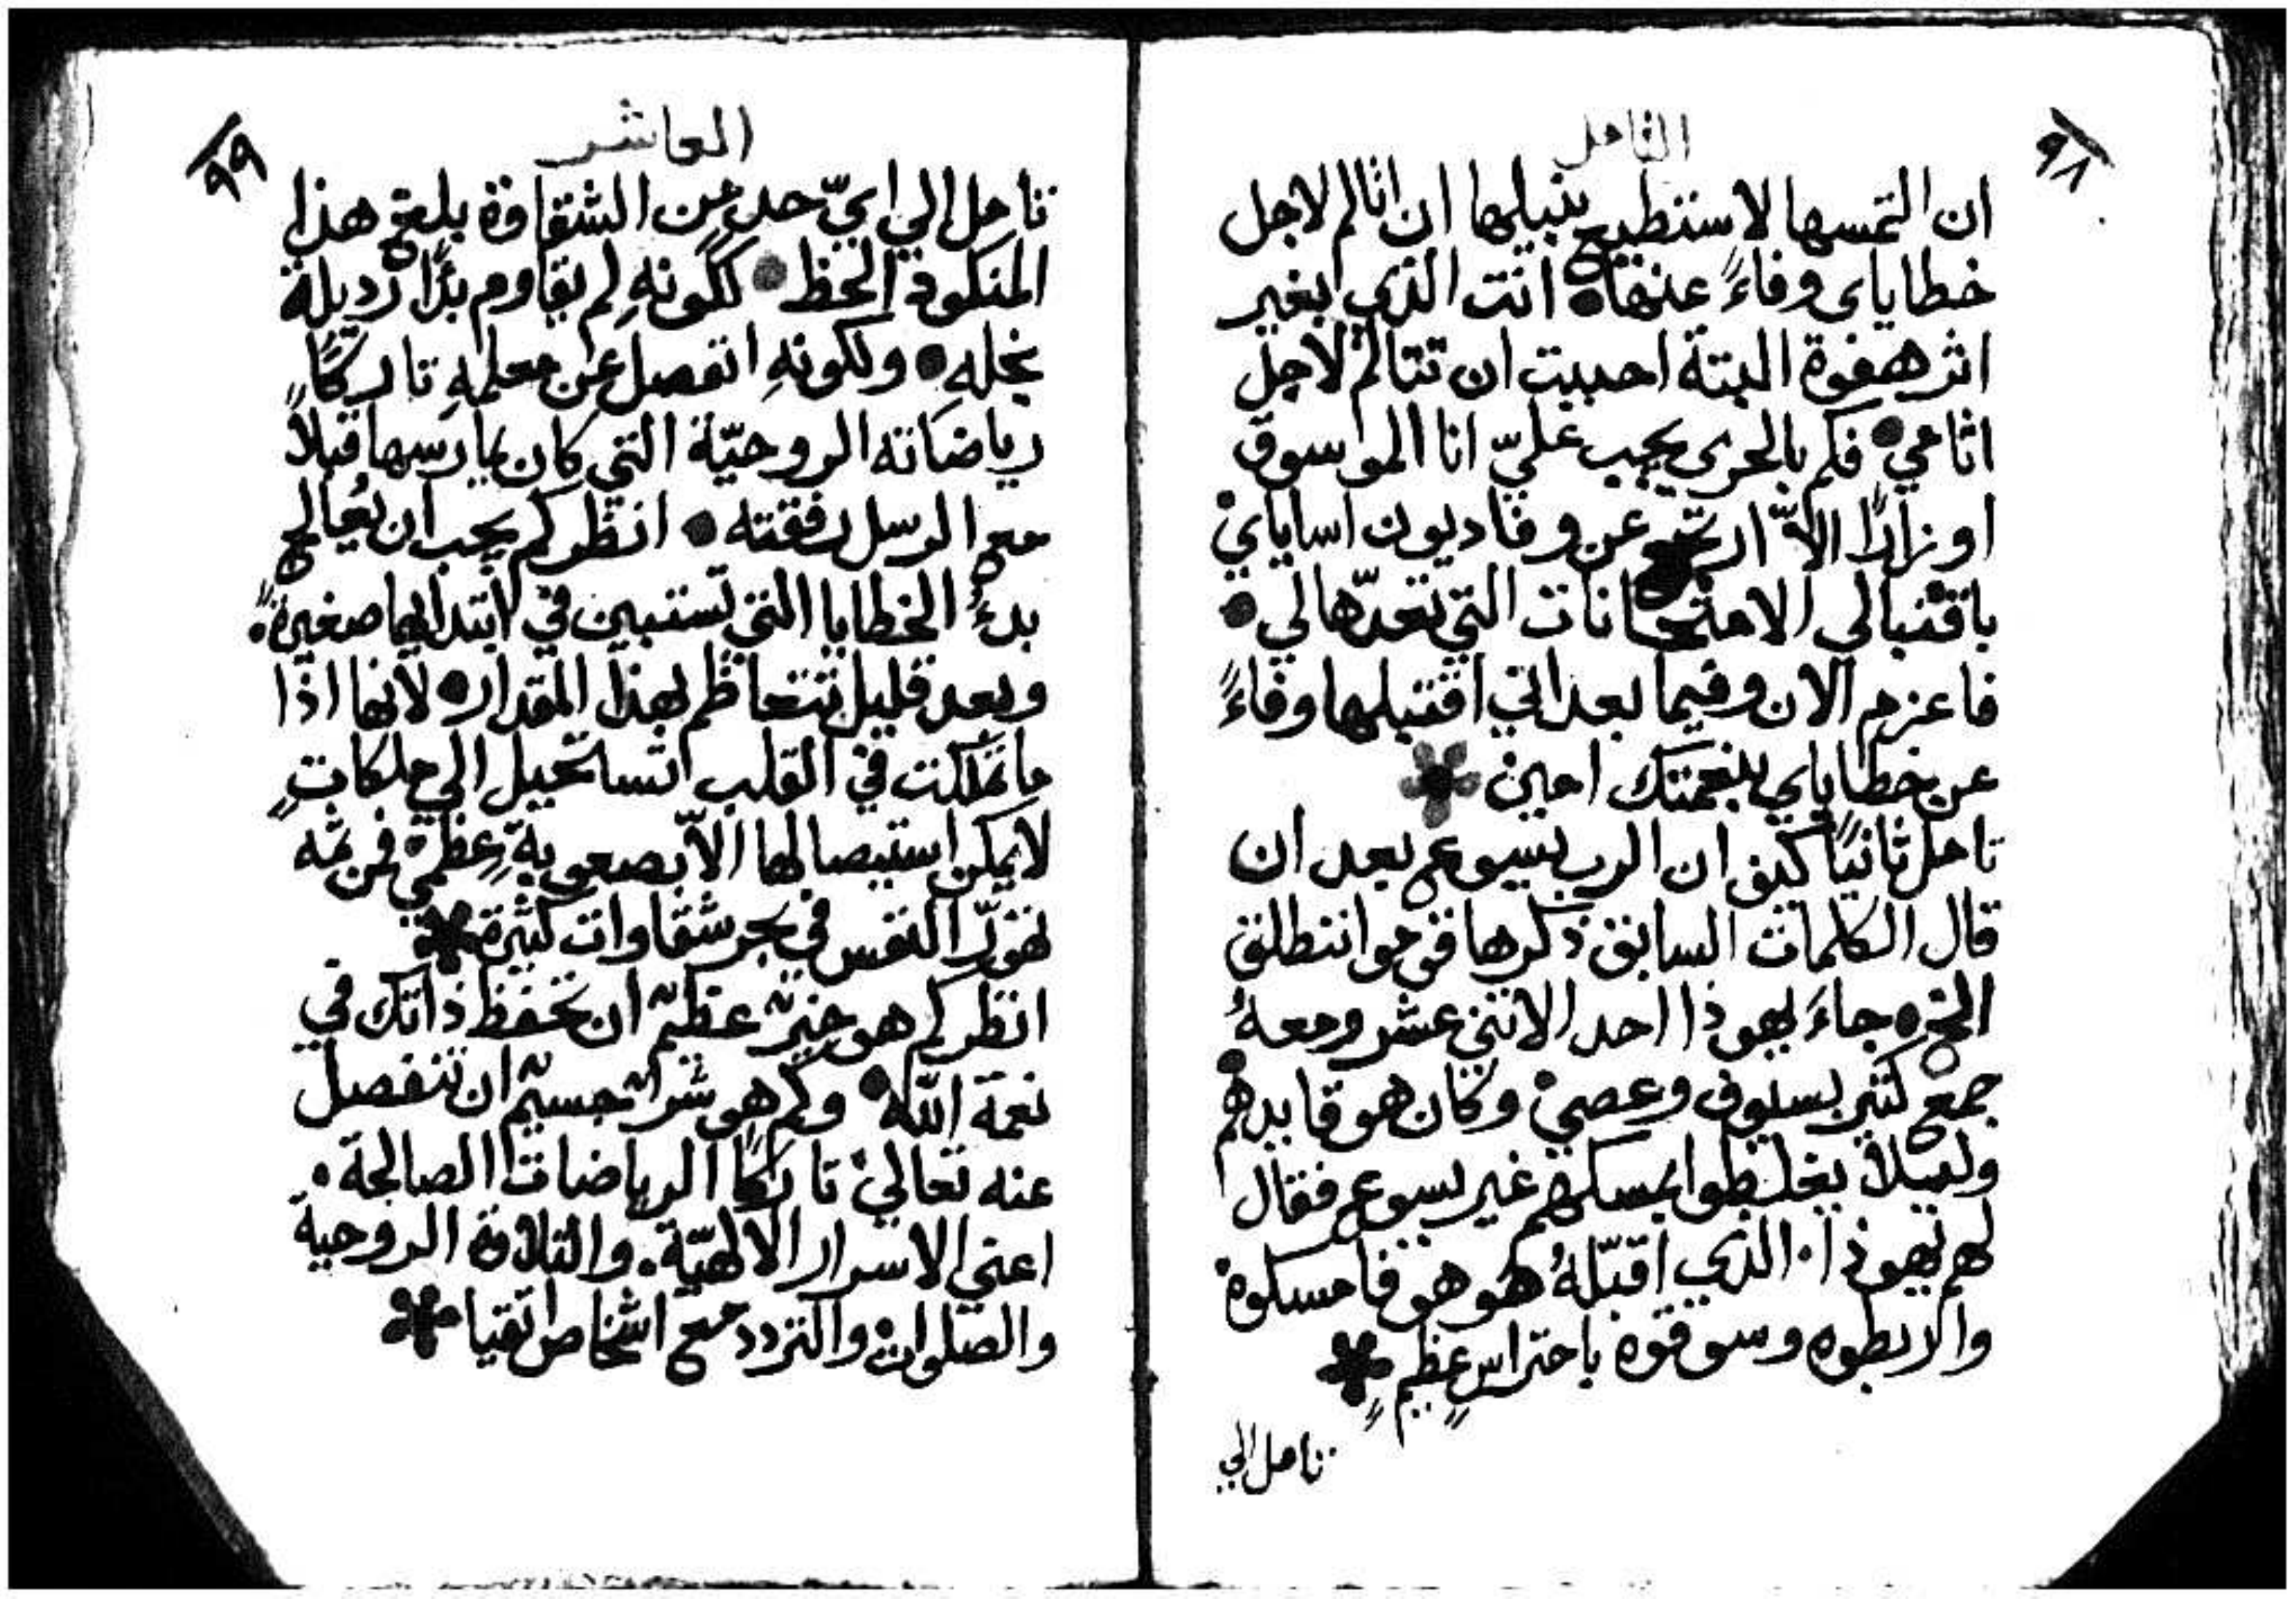 ٩٨
التامل
ان التمسها لاستطيع بنيلها ان اتالم لاجل
خطاياى وفاءً عنها • انت الذي بغير
اثر هفوة البتة احببت ان تتالم لاجل
اثامي • فكم بالحرى يجب عليّ انا الموسوق
اوزارًا الاّ ارتجع عن وفا ديون اساياي
باقتبالي الامتحانات التي تعدّها لي •
فاعزم الان وفيما بعد اني اقتبلها وفاءً
عن خطاياي بنعمتك امين
تامل ثانيًا كيف ان الرب يسوع بعد ان
قال الكلمات السابق ذكرها قوموا ننطلق
الخ • جاءَ يهوذا احد الاثني عشر ومعهُ
جمع كثير بسيوف وعصي وكان هو قايدهم •
وليلا يغلطوا بمسكهم غير يسوع فقال
لهم يهوذا • الذي اقبّلهُ هو هو فامسكوه
واربطوه وسوقوه باحتراسٍ عظيمٍ
تامل الي
٩٩
العاشر
تامل الي ايّ حد من الشقاوة بلغ هذا
المنكود الحظ • لكونهِ لم يقاوم بدًا رذيلة
بخلهِ • ولكونهِ انفصل عن معلمهِ تاركًا
رياضاته الروحيّة التي كان يمارسها قبلاً
مع الرسل رفقته • انظر كم يجب ان يُعالج
بدءُ الخطايا التي تستبين في ابتدايها صغيرةً •
وبعد قليل تتعاظم بهذا المقدار • لانها اذا
ما تملكت في القلب استحيل الي ملكاتٍ
لا يمكن استيصالها الاّ بصعوبةٍ عظمي فمن ثمه
تهوّر النفس في بحر شقاوات كثيرة
انظر كم هو خيرٌ عظيمٌ ان تحفظ ذاتك في
نعمة اللّه • وكم هو شرٌ جسيمٌ ان تنفصل
عنه تعالي تاركًا الرياضات الصالحة •
اعني الاسرار الالهيّة • والتلاوة الروحية
والصلوات والتردد مع اشخاص اتقيا